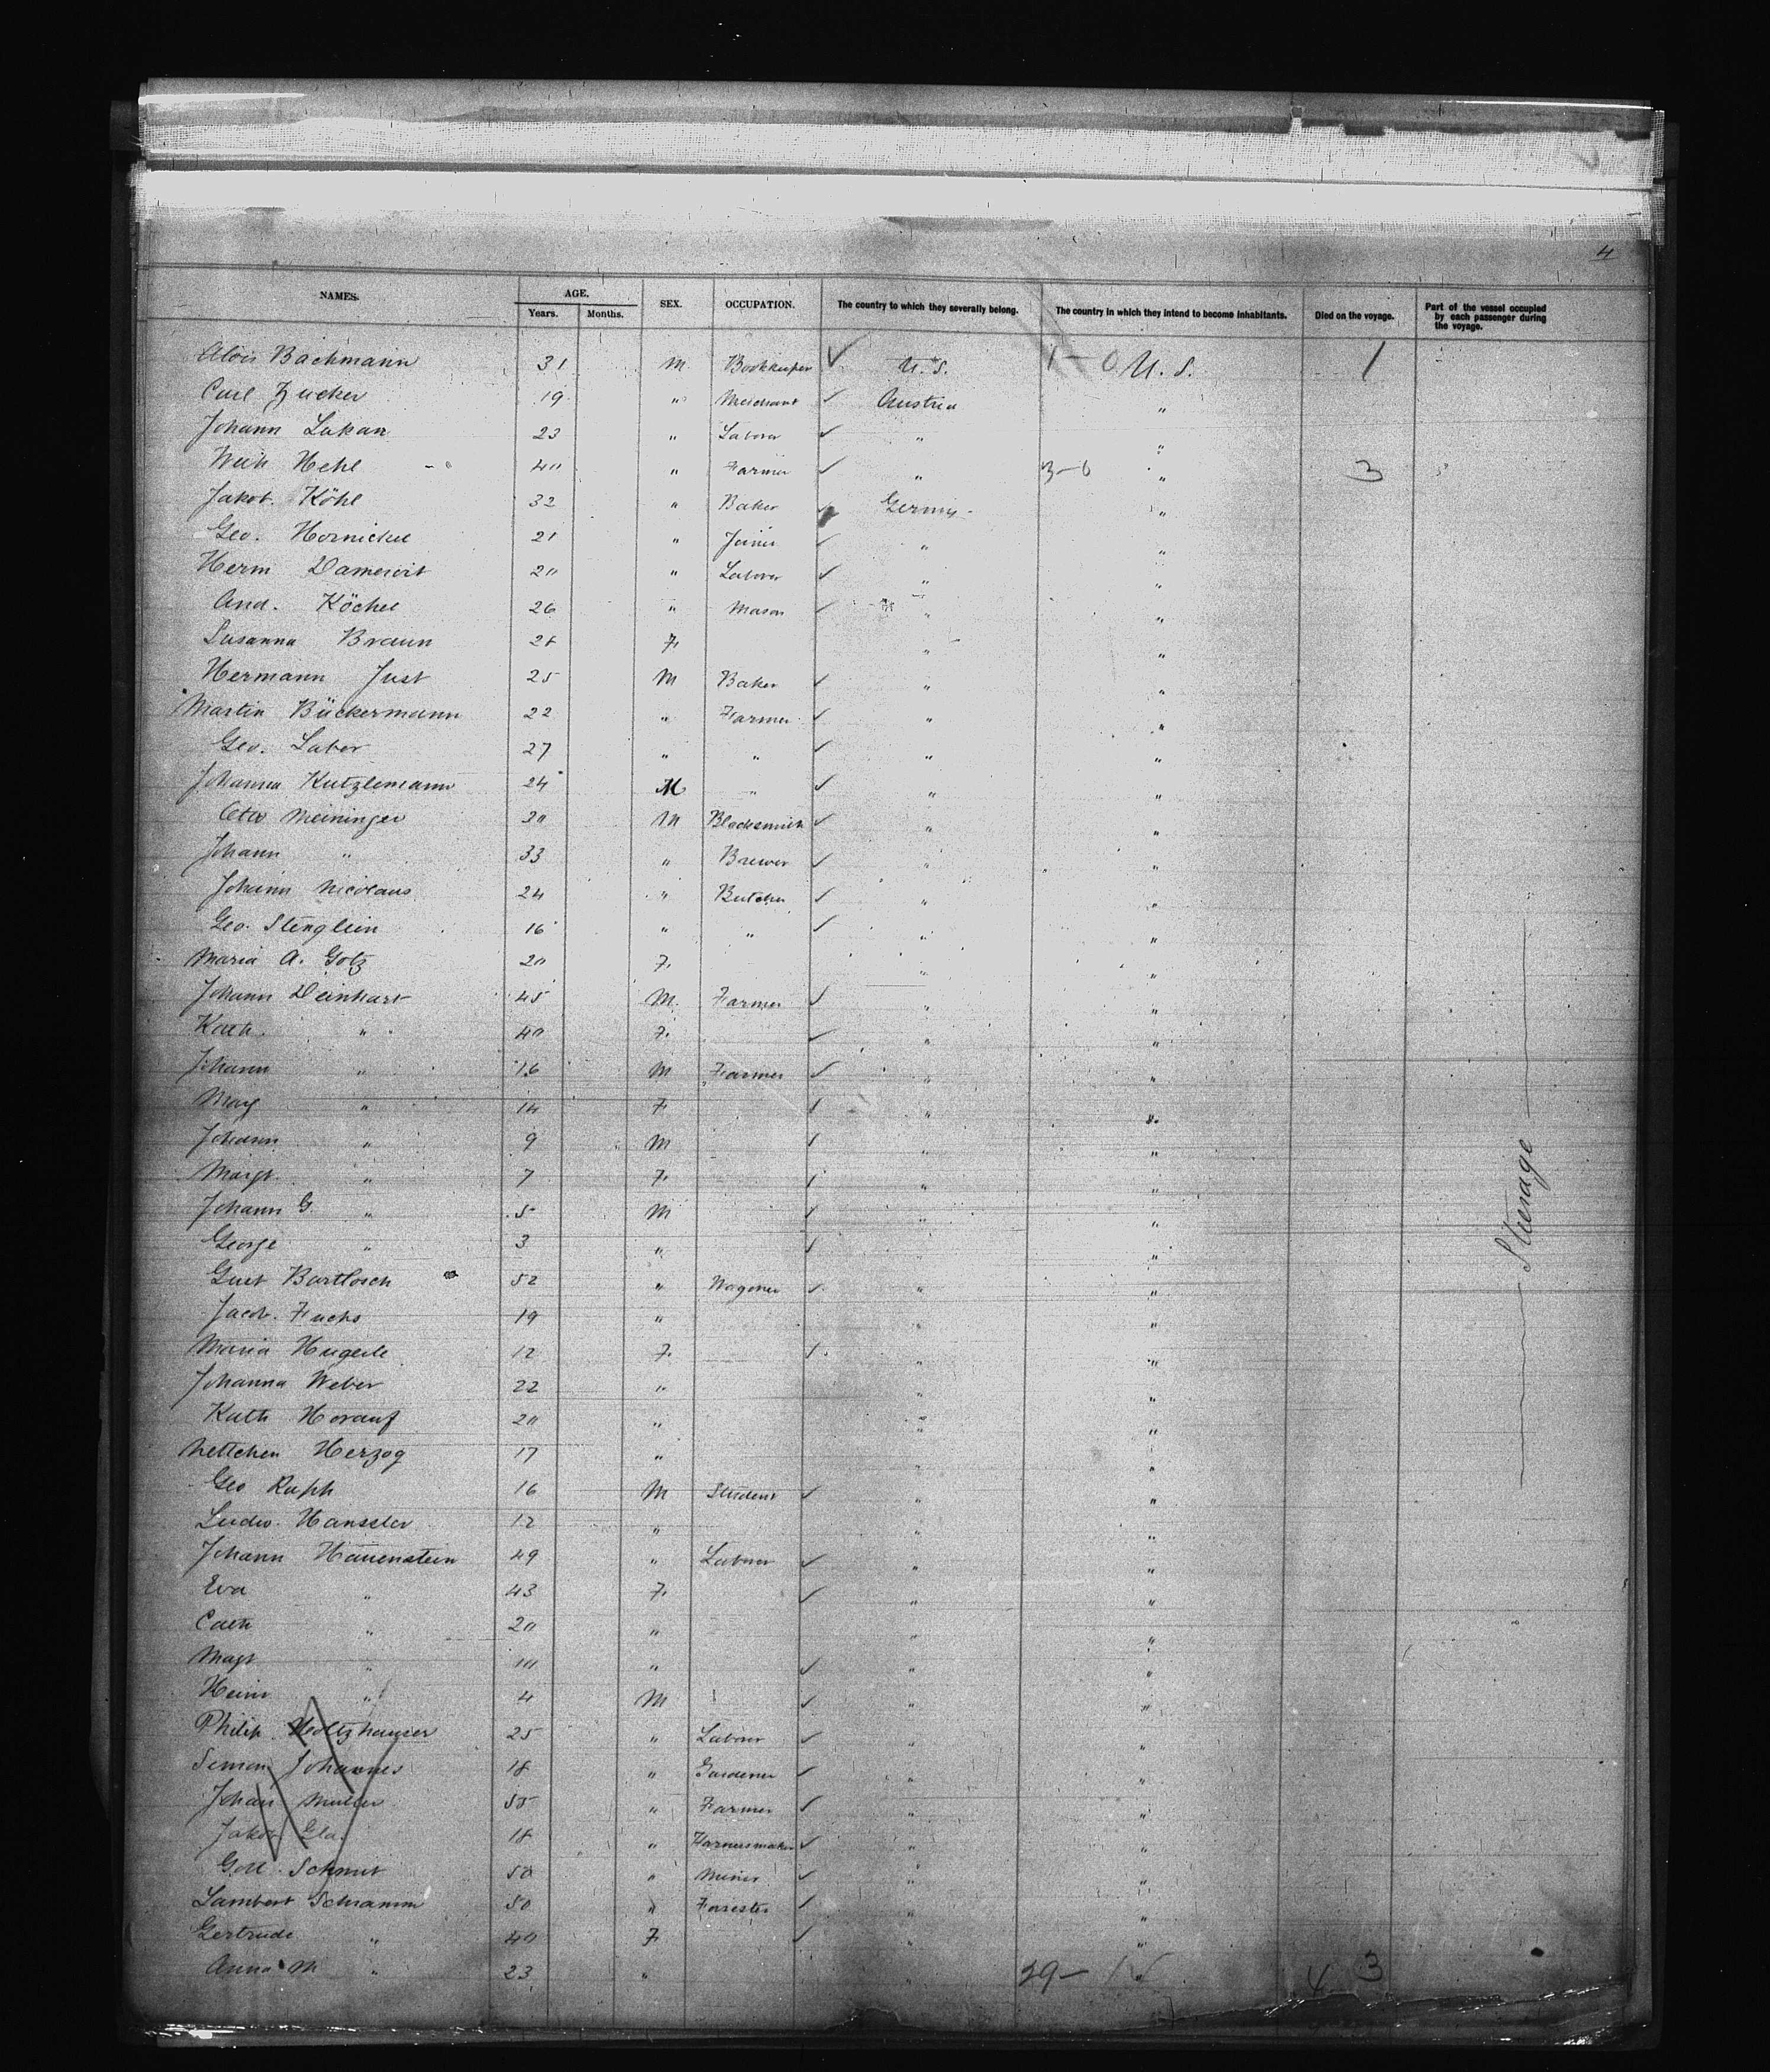 4
NAMES. AGE. SEX. OCCUPATION. The country to which they severally belong. The country in which they intend to become inhabitants. Died on the voyage. Part of the vessel occupied by each passenger during the voyage.
Years. Months.
Alois Bachmann 31 M. Bookkeeper ✓ U. S. 1-0 U. S. 1
Carl Zucker 19 " Merchant ✓ Austria "
Johann Lukan 23 " Laborer ✓ " "
Hehl 40 " Farmer ✓ " 3-0 " 3
Jakob Köhl 32 " Baker Germy "
Geo. Hornickel 21 " Joiner ✓ " "
Herm 20 " Laborer ✓ " "
And. Köchel 26 " Mason ✓ " "
Susanna Braun 28 F. " "
Hermann Just 25 M Baker ✓ " "
Martin Bückermann 22 " Farmer ✓ " "
Geo. 27 " " ✓ " "
Johanna 24 M " ✓ " "
Otto Meininger 30 M Blacksmith ✓ " "
Johann " 33 " Brewer ✓ " "
Johann Nicolaus 24 " Butcher ✓ " "
Geo. Stenglein 16 " " ✓ " "
Maria A. Gotz 20 F. " "
Johann Deinhart 45 M. Farmer ✓ " "
Kath. " 40 F. ✓ " "
Johann " 16 M Farmer ✓ " "
" 14 F ✓ " "
Johann " 9 M ✓ " "
Margt. " 7 F. ✓ " "
Johann G. " 5 M ✓ " "
George " 3 " ✓ " "
Gust 52 " Wagoner ✓ " "
Jacob Fuchs 19 " " "
Maria 12 F. ✓ " "
Johanna Weber 22 " " "
Kath Horauf 20 " " "
Nettchen Herzog 17 " " "
Geo Rupp 16 M Student ✓ " "
Ludw. Hanssler 12 " " "
Johann Hauenstein 49 " Laborer ✓ " "
Eva " 43 F. ✓ " "
Cath " 20 " " "
Magt " 10 " ✓ " "
Heinr " 4 M ✓ " "
Philip Holtzhauser 25 " Laborer ✓ " "
Simon Johannes 18 " Gardener ✓ " "
Johan Muller 55 " Farmer ✓ " "
Jakob 18 " Harnessmaker ✓ " "
50 " Miner ✓ " "
Lambert Schramm 50 " Forrester ✓ " "
Gertrude " 40 F ✓ " "
Anna M " 23 " " 4 3
Steerage